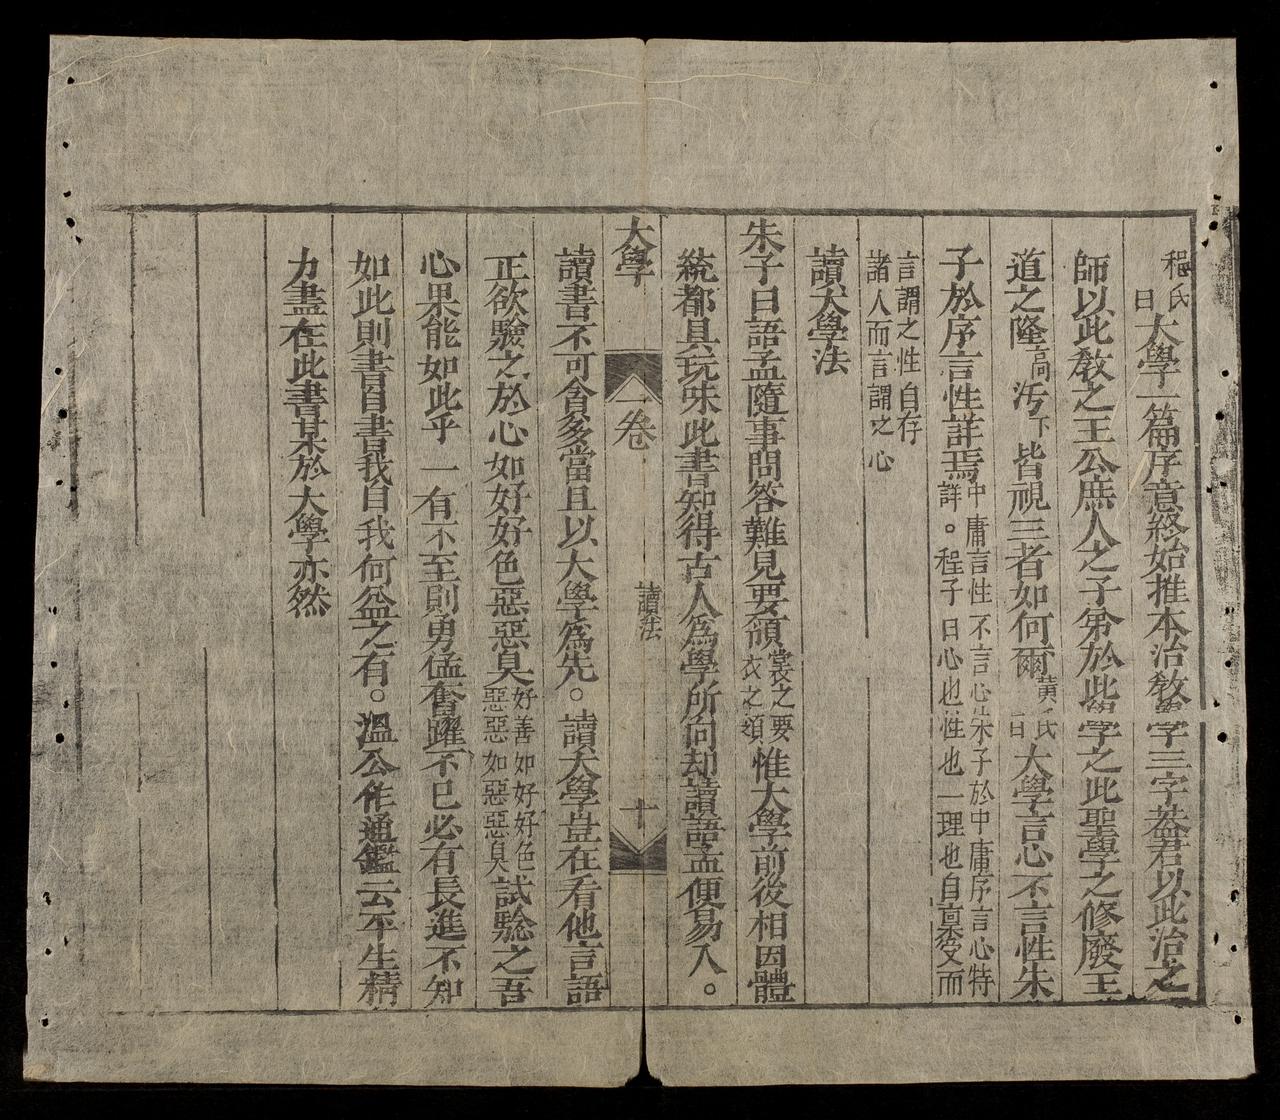 程氏曰大學一篇序意終始推本治教學三字葢君以此治之
師以此教之王公庶人之子弟於此學之此聖學之修廢王
道之隆高汚下皆視三者如何爾黃氏曰大學言心不言性朱
子於序言性詳焉中庸言性不言心朱子於中庸序言心特
詳。程子曰心也性也一理也自稟受而
言謂之性自存
諸人而言謂之心
讀大學法
朱子曰語孟隨事問答難見要領裳之要
衣之領惟大學前後相因體
統都具玩味此書知得古人爲學所向却讀語孟便易入。
大學 一卷 讀法 十
讀書不可貪多當且以大學爲先。讀大學豈在看他言語
正欲驗之於心如好好色惡惡臭好善如好好色
惡惡如惡惡臭試驗之吾
心果能如此乎一有不至則勇猛奮躍不已必有長進不知
如此則書自書我自我何益之有。溫公作通鑑云平生精
力盡在此書某於大學亦然